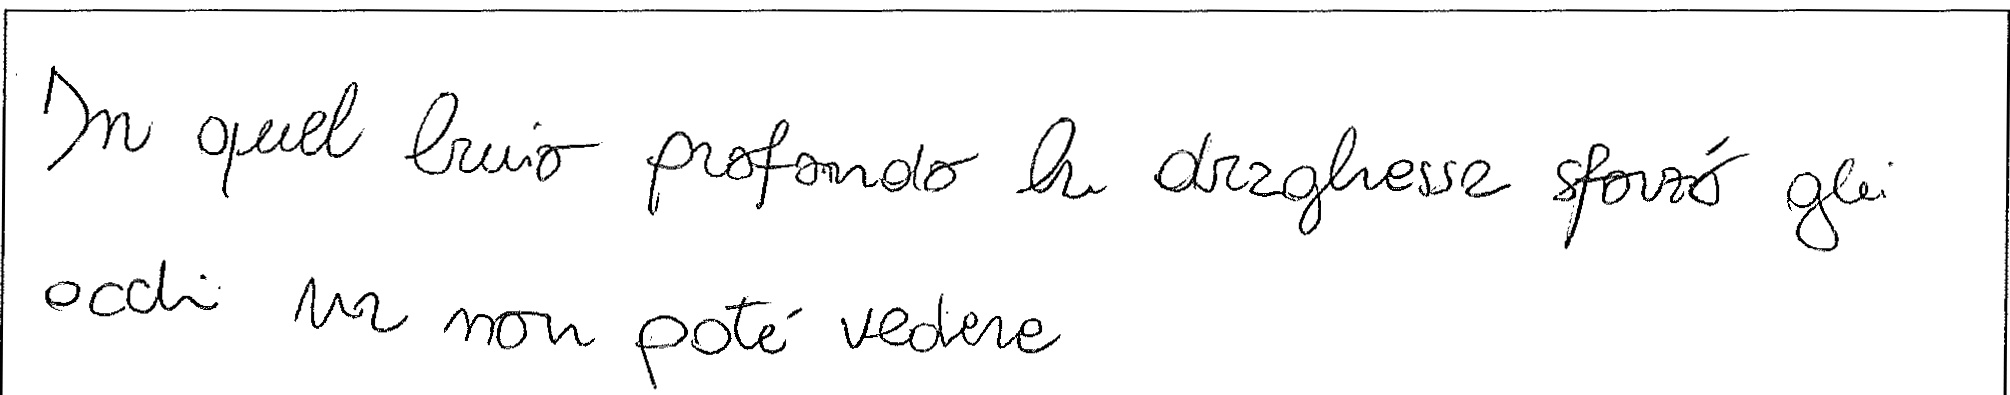 In quel buio profondo la draghessa sforzó gli
occhi ma non poté vedere